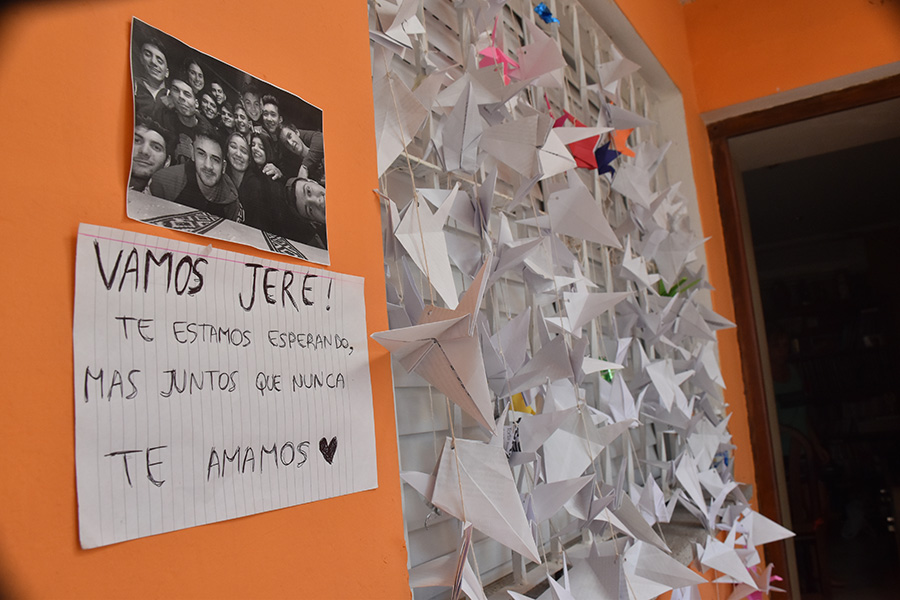 VAMOS JERE!
TE ESTAMOS ESPERANDO,
MAS JUNTOS QUE NUNCA
TE AMAMOS ♥